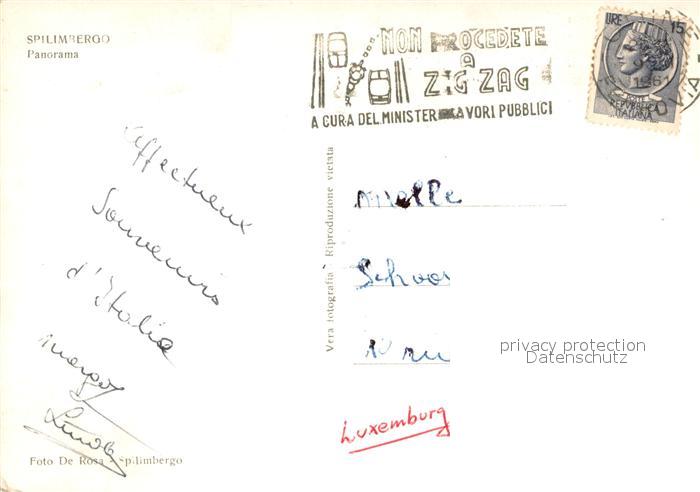 SPILIMBERGO
Panorama
NON PROCEDETE
A
ZIG ZAG
A CURA DEL MINISTER LAVORI PUBBLICI
LIRE 15
REPVBBLICA
ITALIANA
1961
affectueux
Souvenirs
d'Italie
Vera fotografia - Riproduzione vietata
Melle
privacy protection
Datenschutz
Luxemburg
Foto De Rosa - Spilimbergo